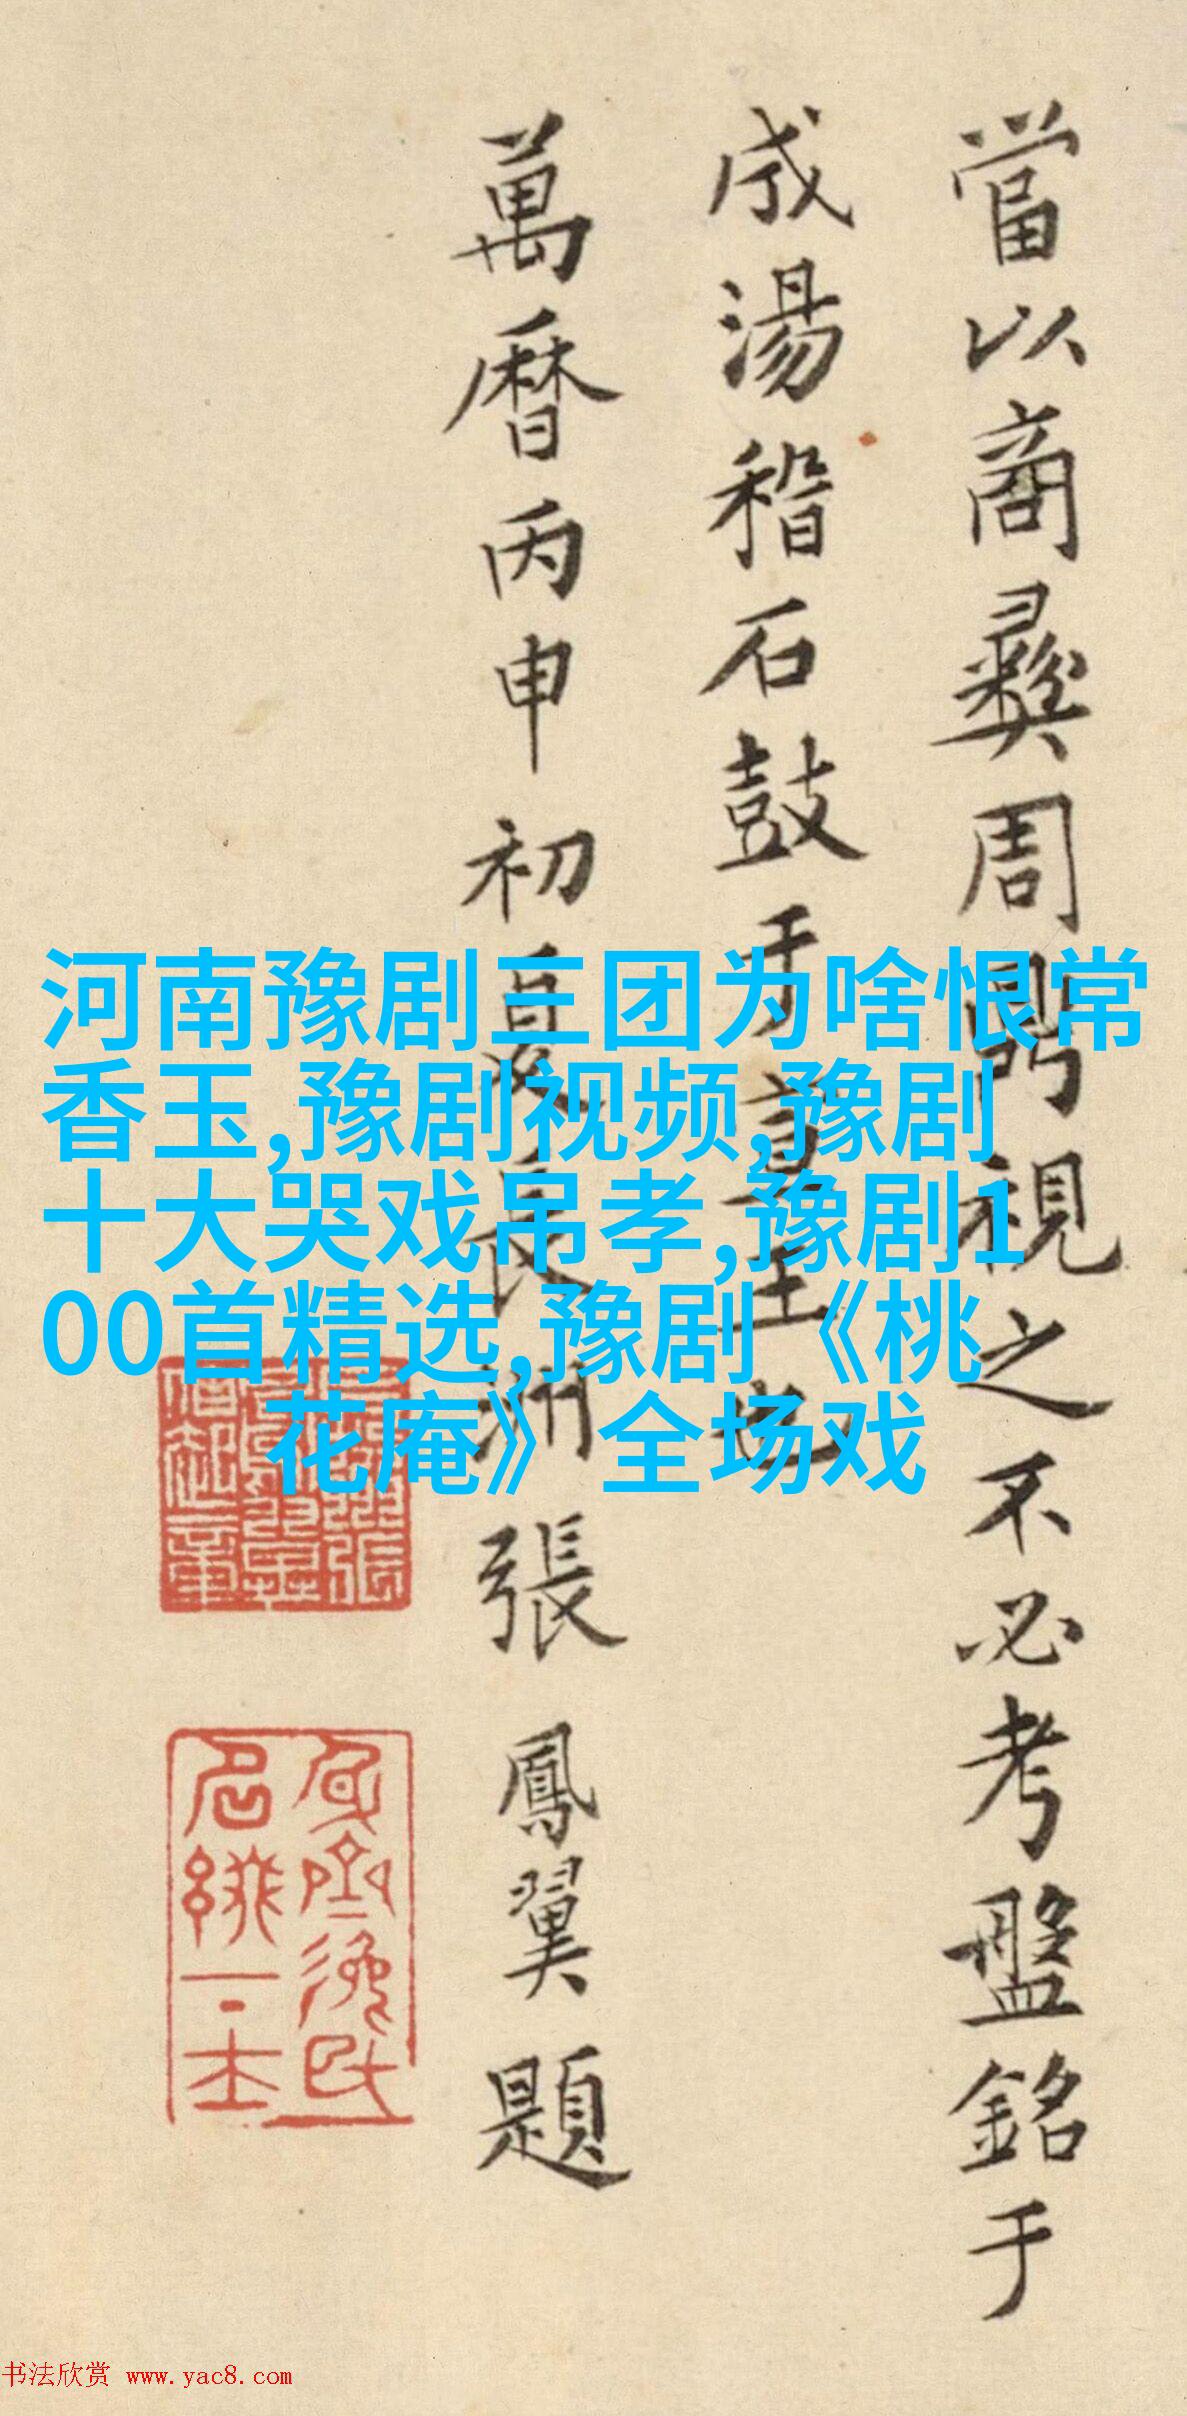 當以商彝周鼎視之不必考盤銘于
成湯稽石鼓于宣王也
萬曆丙申初夏長洲張鳳翼題
河南豫剧三团为啥恨常
香玉,豫剧视频,豫剧
十大哭戏吊孝,豫剧1
00首精选,豫剧《桃
花庵》全场戏
书法欣赏 www.yac8.com